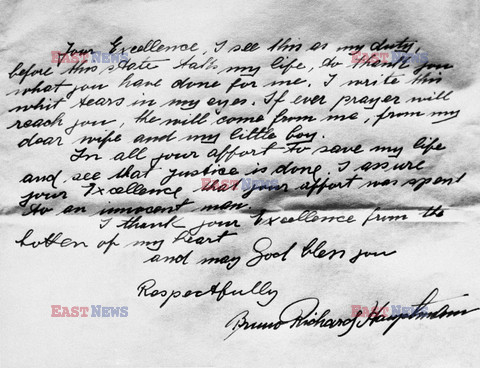 Your Excellence, I see this as my duty,
before this state takk my life, to thank you
what you have done for me. I write this
whit tears in my eyes. If ever prayer will
reach you, he will come from me, from my
dear wife and my little boy.
In all your affort to save my life
and see that justice is done, I assure
your Excellence that your affort was spent
to an innocent man.
I thank your Excellence from the
botten of my heart
and may God bless you
Respectfully
Bruno Richard Hauptmann
EAST NEWS
EAST NEWS
EAST NEWS
EAST NEWS
EAST NEWS